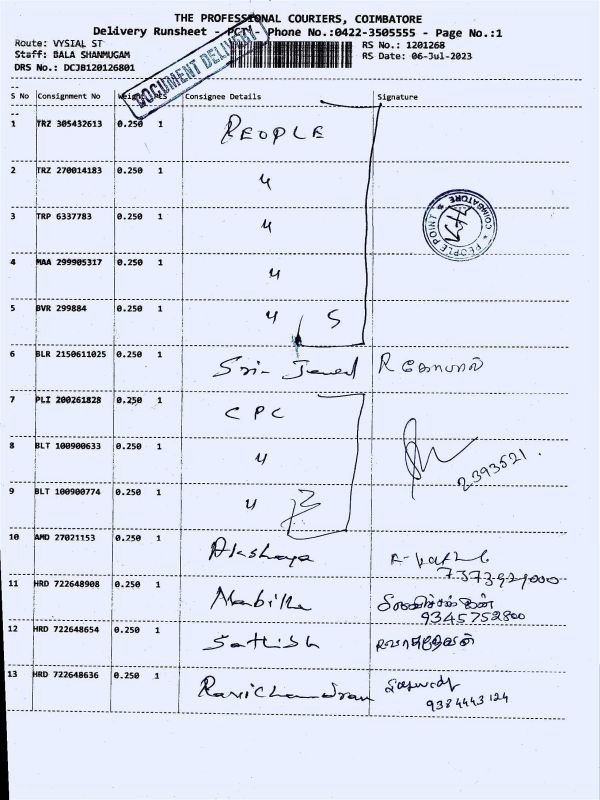 THE PROFESSIONAL COURIERS, COIMBATORE
Delivery Runsheet - PCT - Phone No.:0422-3505555 - Page No.:1
Route: VYSIAL ST RS No.: 1201268
Staff: BALA SHANMUGAM RS Date: 06-Jul-2023
DRS No.: DCJB120126801
DOCUMENT DELIVERY
S No Consignment No Weight PCS Consignee Details Signature
1 TRZ 305432613 0.250 1 PEOPLE
2 TRZ 270014183 0.250 1 "
3 TRP 6337783 0.250 1 "
PEOPLE POINT * COIMBATORE *
4 MAA 299905317 0.250 1 "
5 BVR 299884 0.250 1 " 5
6 BLR 2150611025 0.250 1 Sri- R கோபால்
7 PLI 200261828 0.250 1 CPC
8 BLT 100900633 0.250 1 "
2393521.
9 BLT 100900774 0.250 1 " 3
10 AMD 27021153 0.250 1 Akshaya
11 HRD 722648908 0.250 1
9345752800
12 HRD 722648654 0.250 1 Sathish
13 HRD 722648636 0.250 1 Ravichandran
9384443124